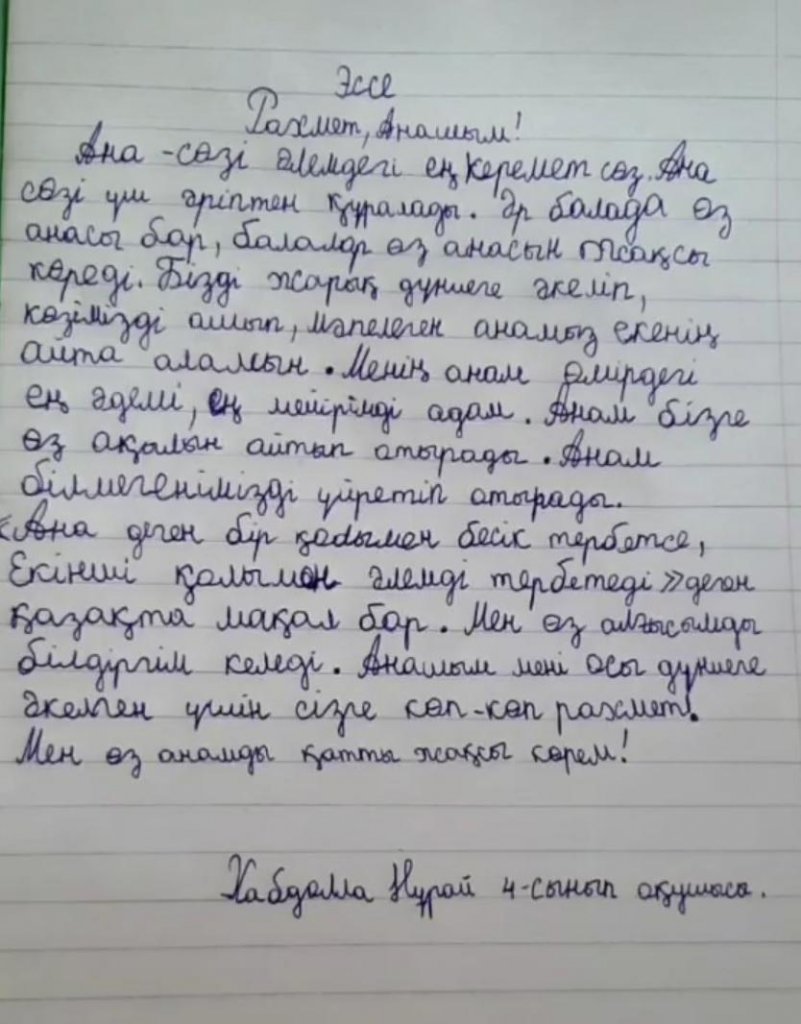 Эссе
Рахмет, Анашым!
Ана - сөзі әлемдегі ең керемет сөз. Ана
сөзі үш әріптен құралады. Әр балада өз
анасы бар, балалар өз анасын жақсы
көреді. Бізді жарық дүниеге әкеліп,
көзімізді ашып, мәпелеген анамыз екенің
айта аламын. Менің анам өмірдегі
ең әдемі, ең мейірімді адам. Анам бізге
өз ақылын айтып отырады. Анам
білмегенімізді үйретіп отырады.
«Ана деген бір қолымен бесік тербетсе,
Екінші қолымен әлемді тербетеді» деген
қазақта мақал бар. Мен өз алғысымды
білдіргім келеді. Анашым мені осы дүниеге
әкелген үшін сізге көп-көп рахмет!
Мен өз анамды қатты жақсы көрем!
Хабдолла Нұрай 4-сынып оқушысы.